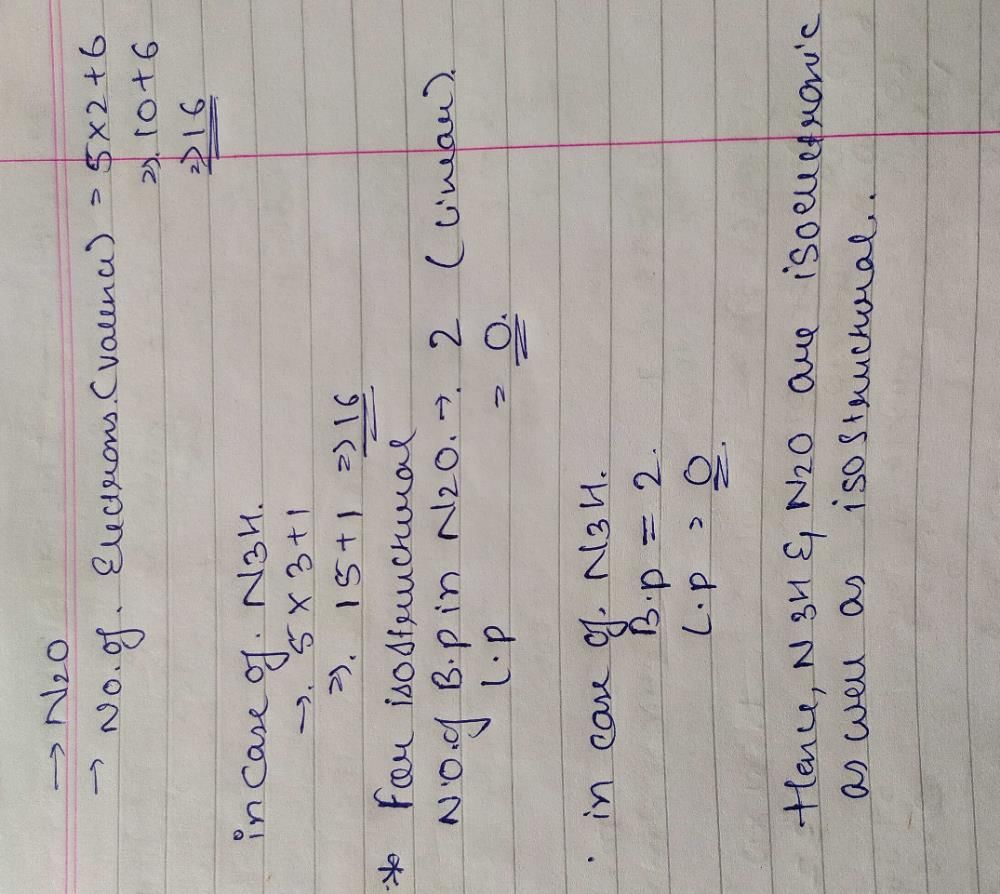 → N2O
→ No. of. Electrons. (valence) = 5×2+6
⇒. 10+6
⇒ 16
in case of. N3H.
→. 5 × 3 + 1
⇒. 15 + 1 ⇒ 16
* For isostructural
NO. of B.p in N2O. →. 2 (Linear).
L.p = 0.
. in case of. N3H.
B.p = 2.
L.p = 0.
Hence, N3H & N2O are isoelectronic
as well as isostructural..